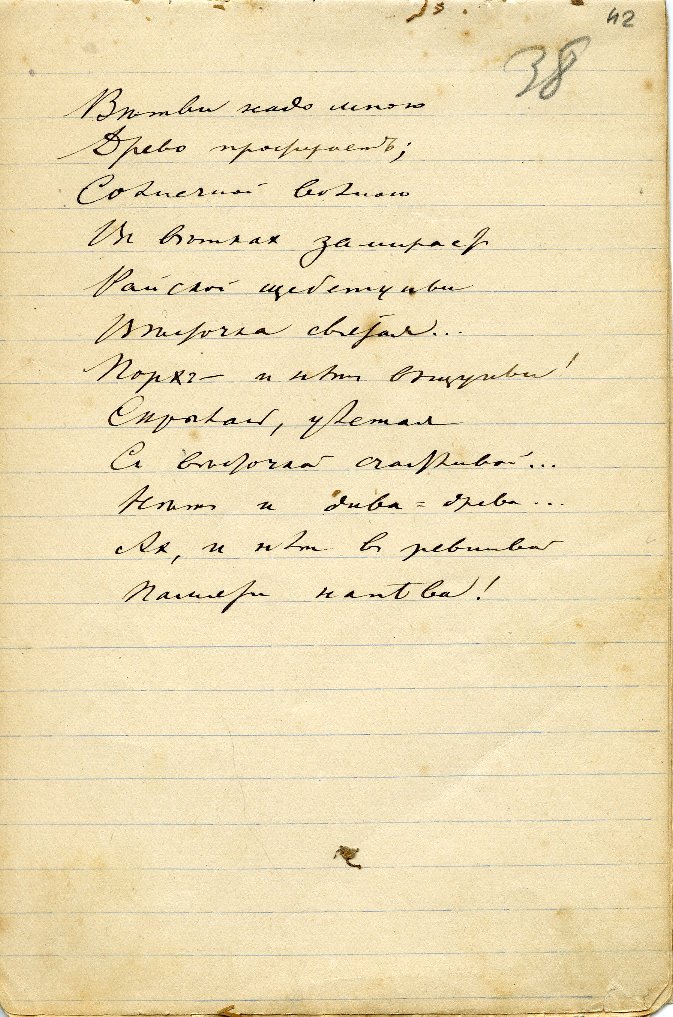 42
38
Вѣтви надо мною
Древо простираетъ;
Солнечной волною
Въ вѣткахъ замирает
Райской щебетуньи
Пѣсночка святая...
Порхъ — и нѣтъ вѣщуньи!
Скрылась, улетая
Съ пѣсночкой счастливой...
Нѣтъ и дива = древа...
Ах, и нѣтъ въ ревнивой
Памяти напѣва!